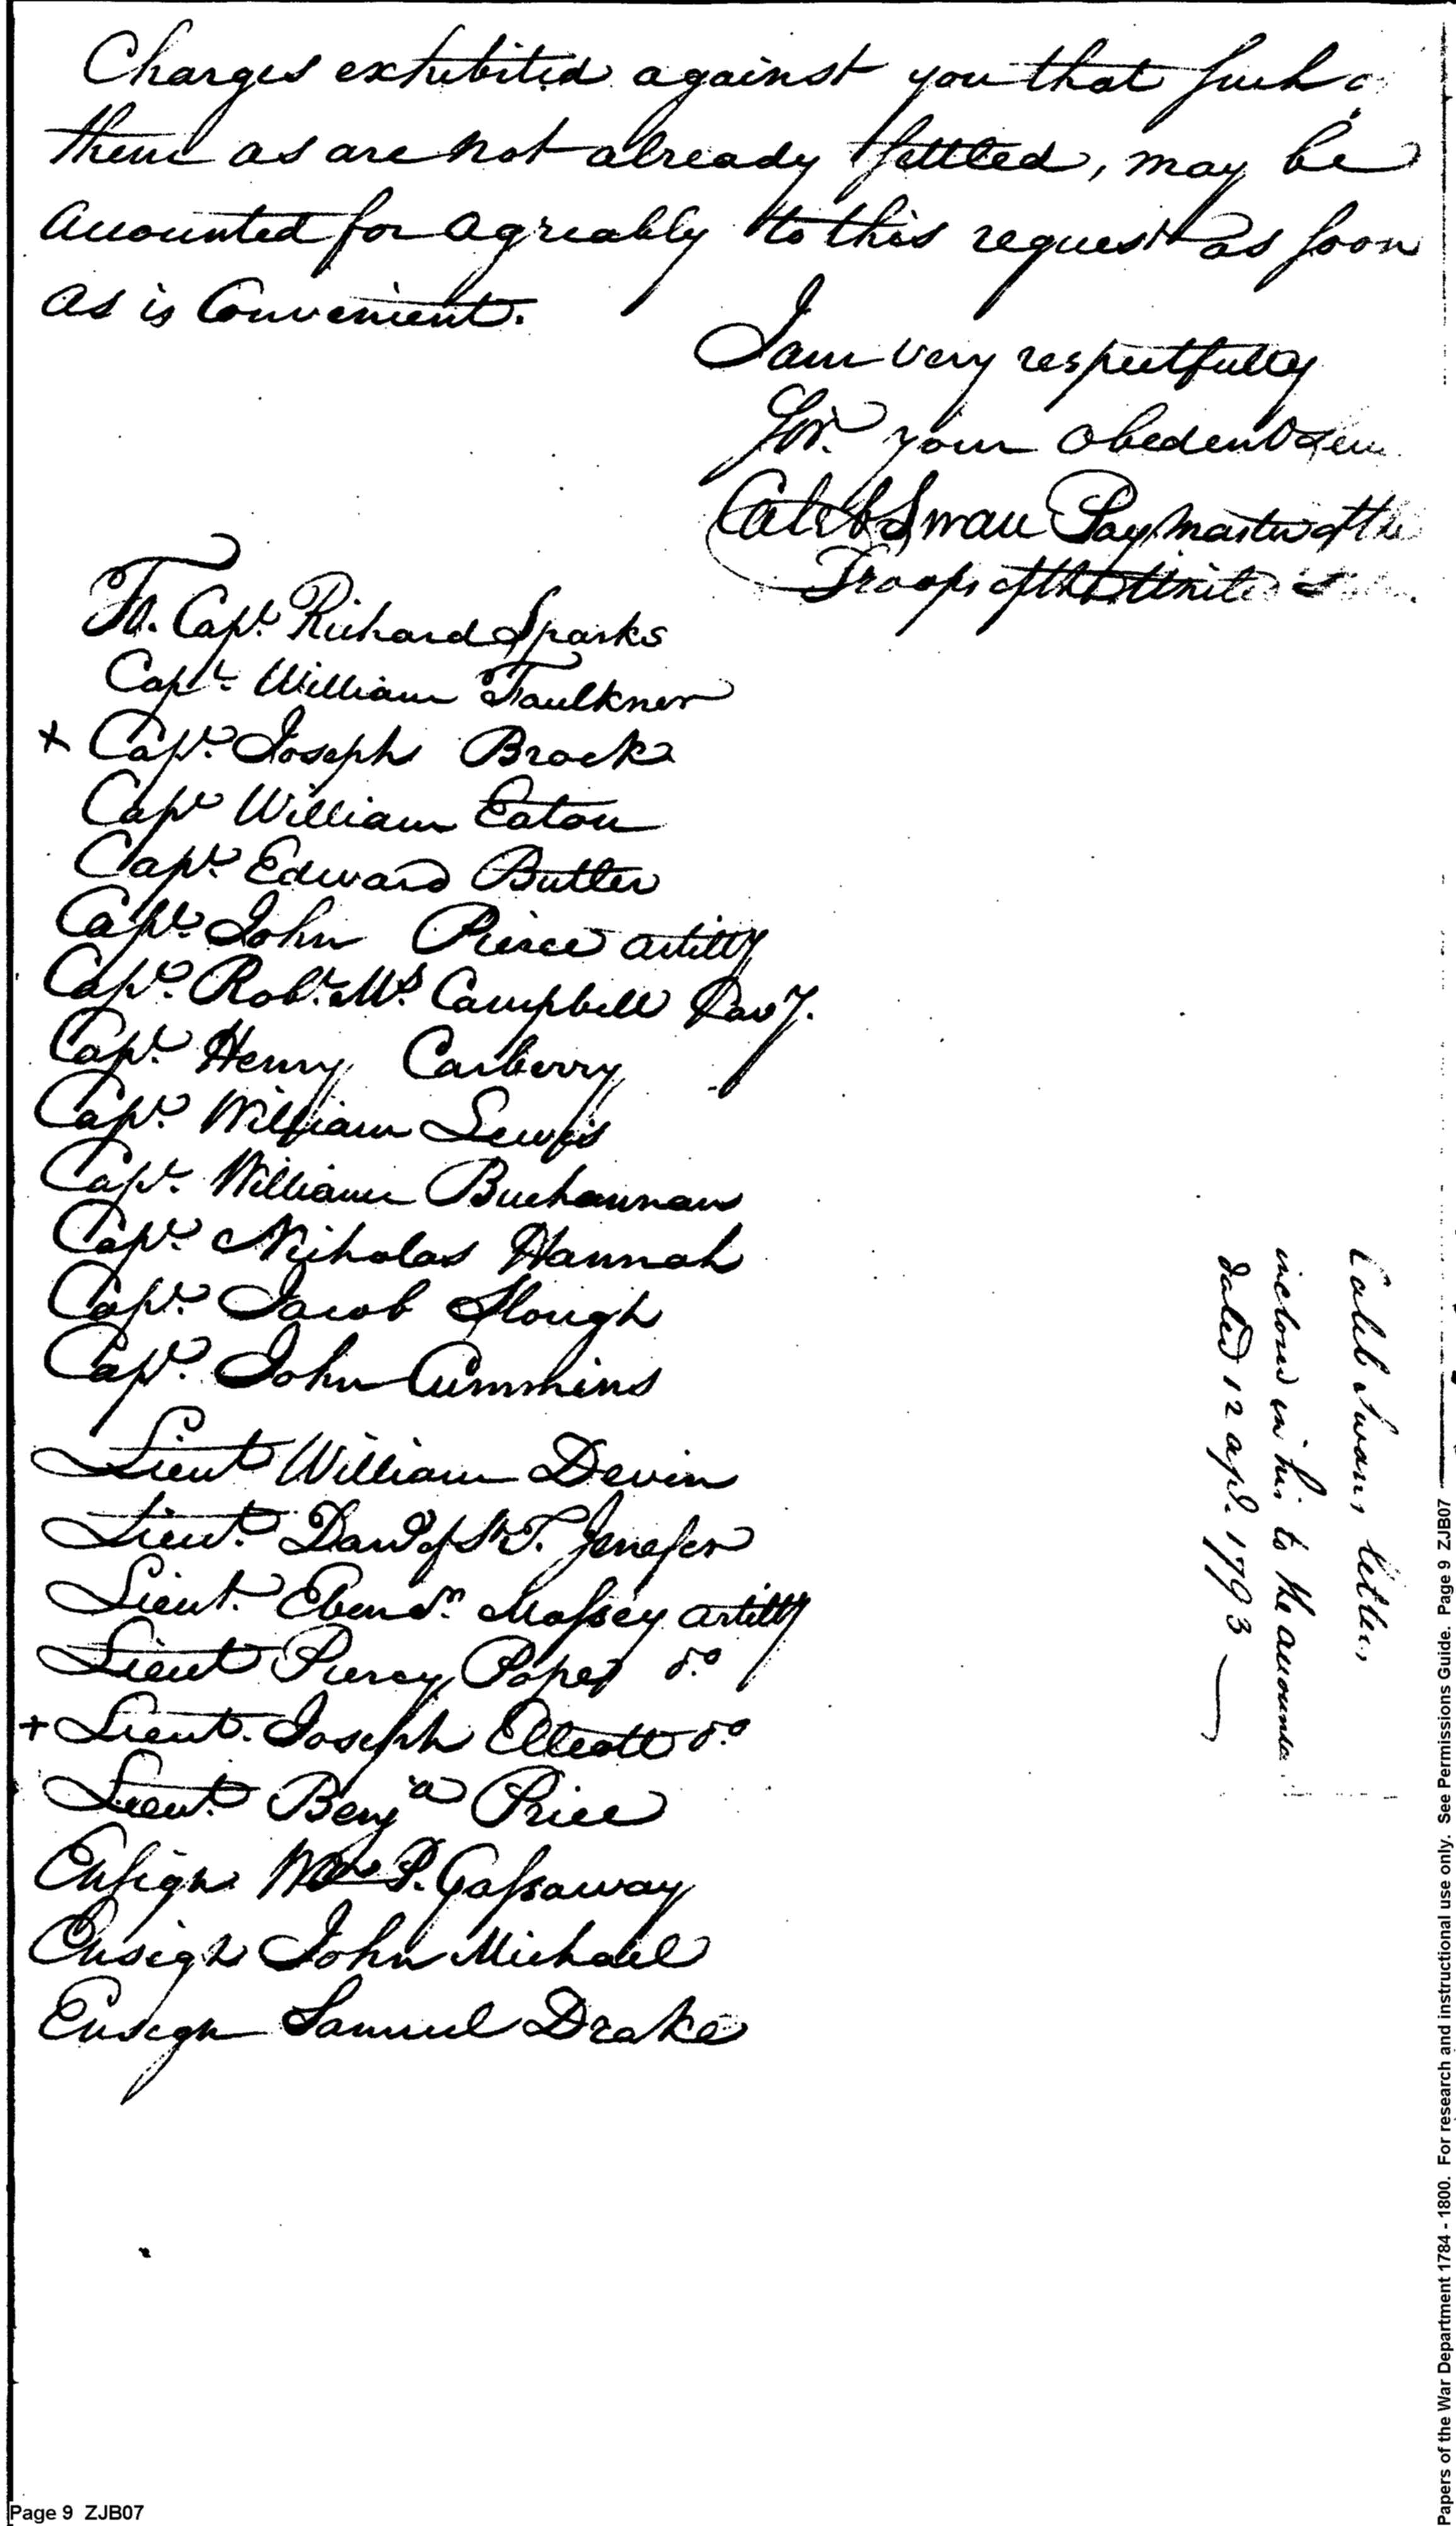 Charges exhibited against you that such
them as are not already settled, may be
accounted for agreably to this request as soon
as is Convenient.
I am very respectfully
Sir. your obedent
Caleb Swan Paymaster of the
Troops of the United
To. Capt. Richard Sparks
Capt. William Faulkner
x Capt. Joseph Brock
Capt William Eaton
Capt. Edward Butler
Capt. John Pierce artilly
Capt. Robt. Ms. Campbell Cavy.
Capt. Henry Carberry
Capt. William Lewis
Capt. William Buchannan
Capt. Nicholas Hannah
Capt. Jacob Slough
Capt. John Cummins
Lieut William Devin
Lieut. Danl of St. T. Jenefer
Lieut. Ebenr. Massey artilly
Lieut Piercy Pope do
+ Lieut. Joseph Elleott do
Lieut. Benja Price
Ensign Wm P. Gassaway
Ensign John Michael
Ensign Samuel Drake
Caleb Swans letter,
inclosed in his to the accounta
dated 12 apl. 1793
Page 9 ZJB07
Papers of the War Department 1784 - 1800. For research and instructional use only. See Permissions Guide. Page 9 ZJB07